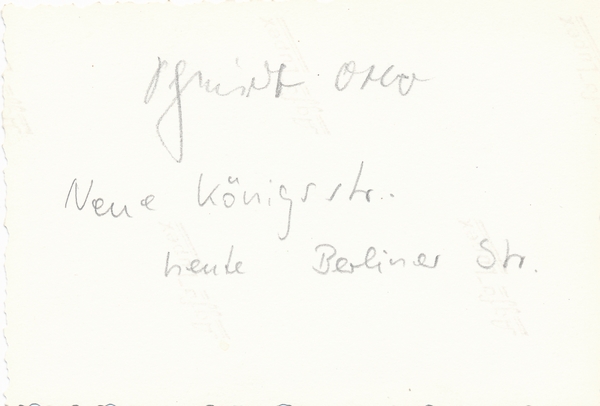 Schmidt Otto
Neue Königsstr.
heute Berliner Str.